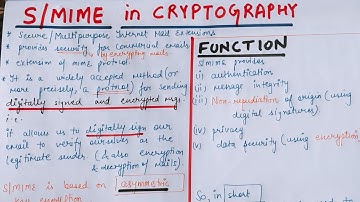 S/MIME in CRYPTOGRAPHY
* Secure/Multipurpose Internet Mail Extensions
* provides security for commercial emails
by encrypting mails
* extension of MIME protocol
* It is a widely accepted method (or
more precisely, a protocol) for sending
digitally signed and encrypted msgs
i.e.
it allows us to digitally sign our
email to verify ourselves as the
legitimate sender (& also encryption
& decryption of mails).
S/MIME is based on asymmetric
key encryption
FUNCTION
S/MIME provides
i) authentication
ii) message integrity
iii) Non-repudiation of origin (using
digital signatures)
(iv) privacy
(v) data security (using encryption)
So, in short